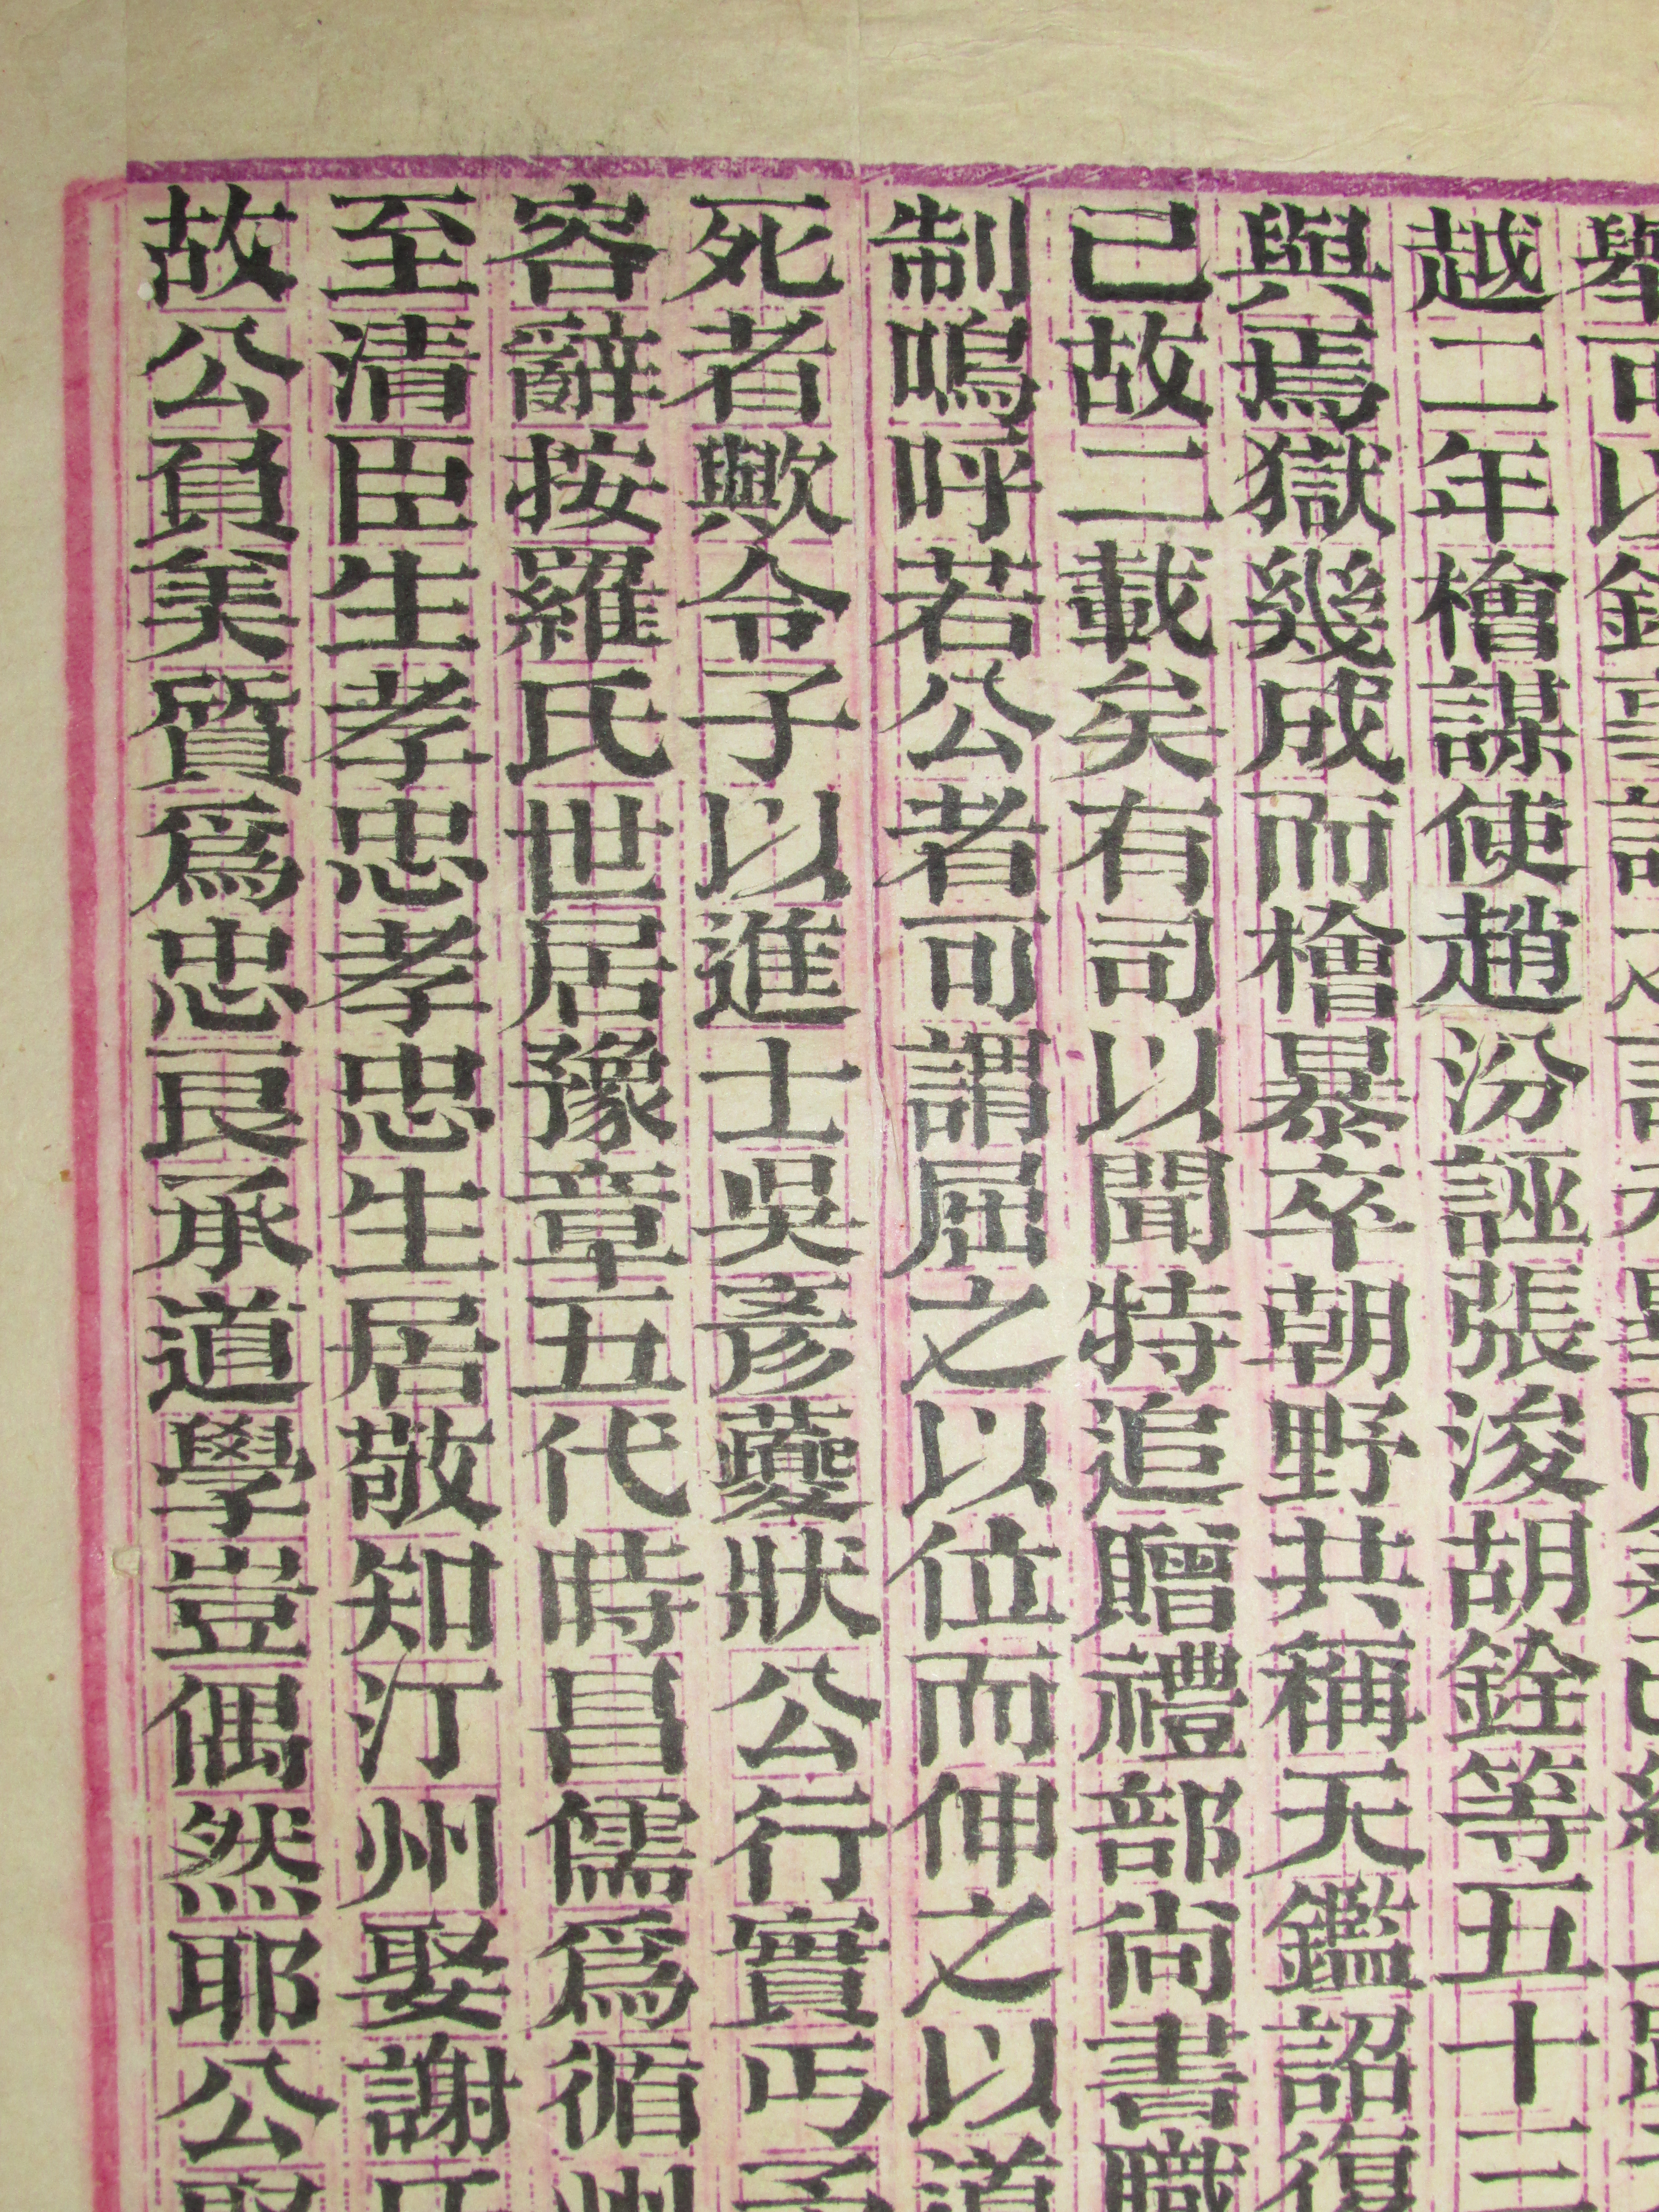 越二年檜謀使趙汾誣張浚胡銓等五十三
與焉獄幾成而檜暴卒朝野共稱天鑑詔復
已故二載矣有司以聞特追贈禮部尚書職
制嗚呼若公者可謂屈之以位而伸之以道
死者歟令子以進士吳彥夔狀公行實丐予
容辭按羅氏世居豫章五代時昌儒爲循州
至清臣生孝忠孝忠生居敬知汀州娶謝氏
故公負美質爲忠良承道學豈偶然耶公娶